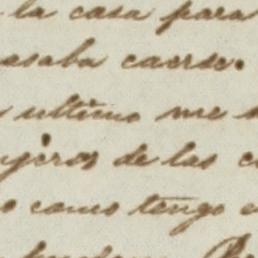 la casa para
esaba caerse.
ultimo me
jeros de las
o como tengo